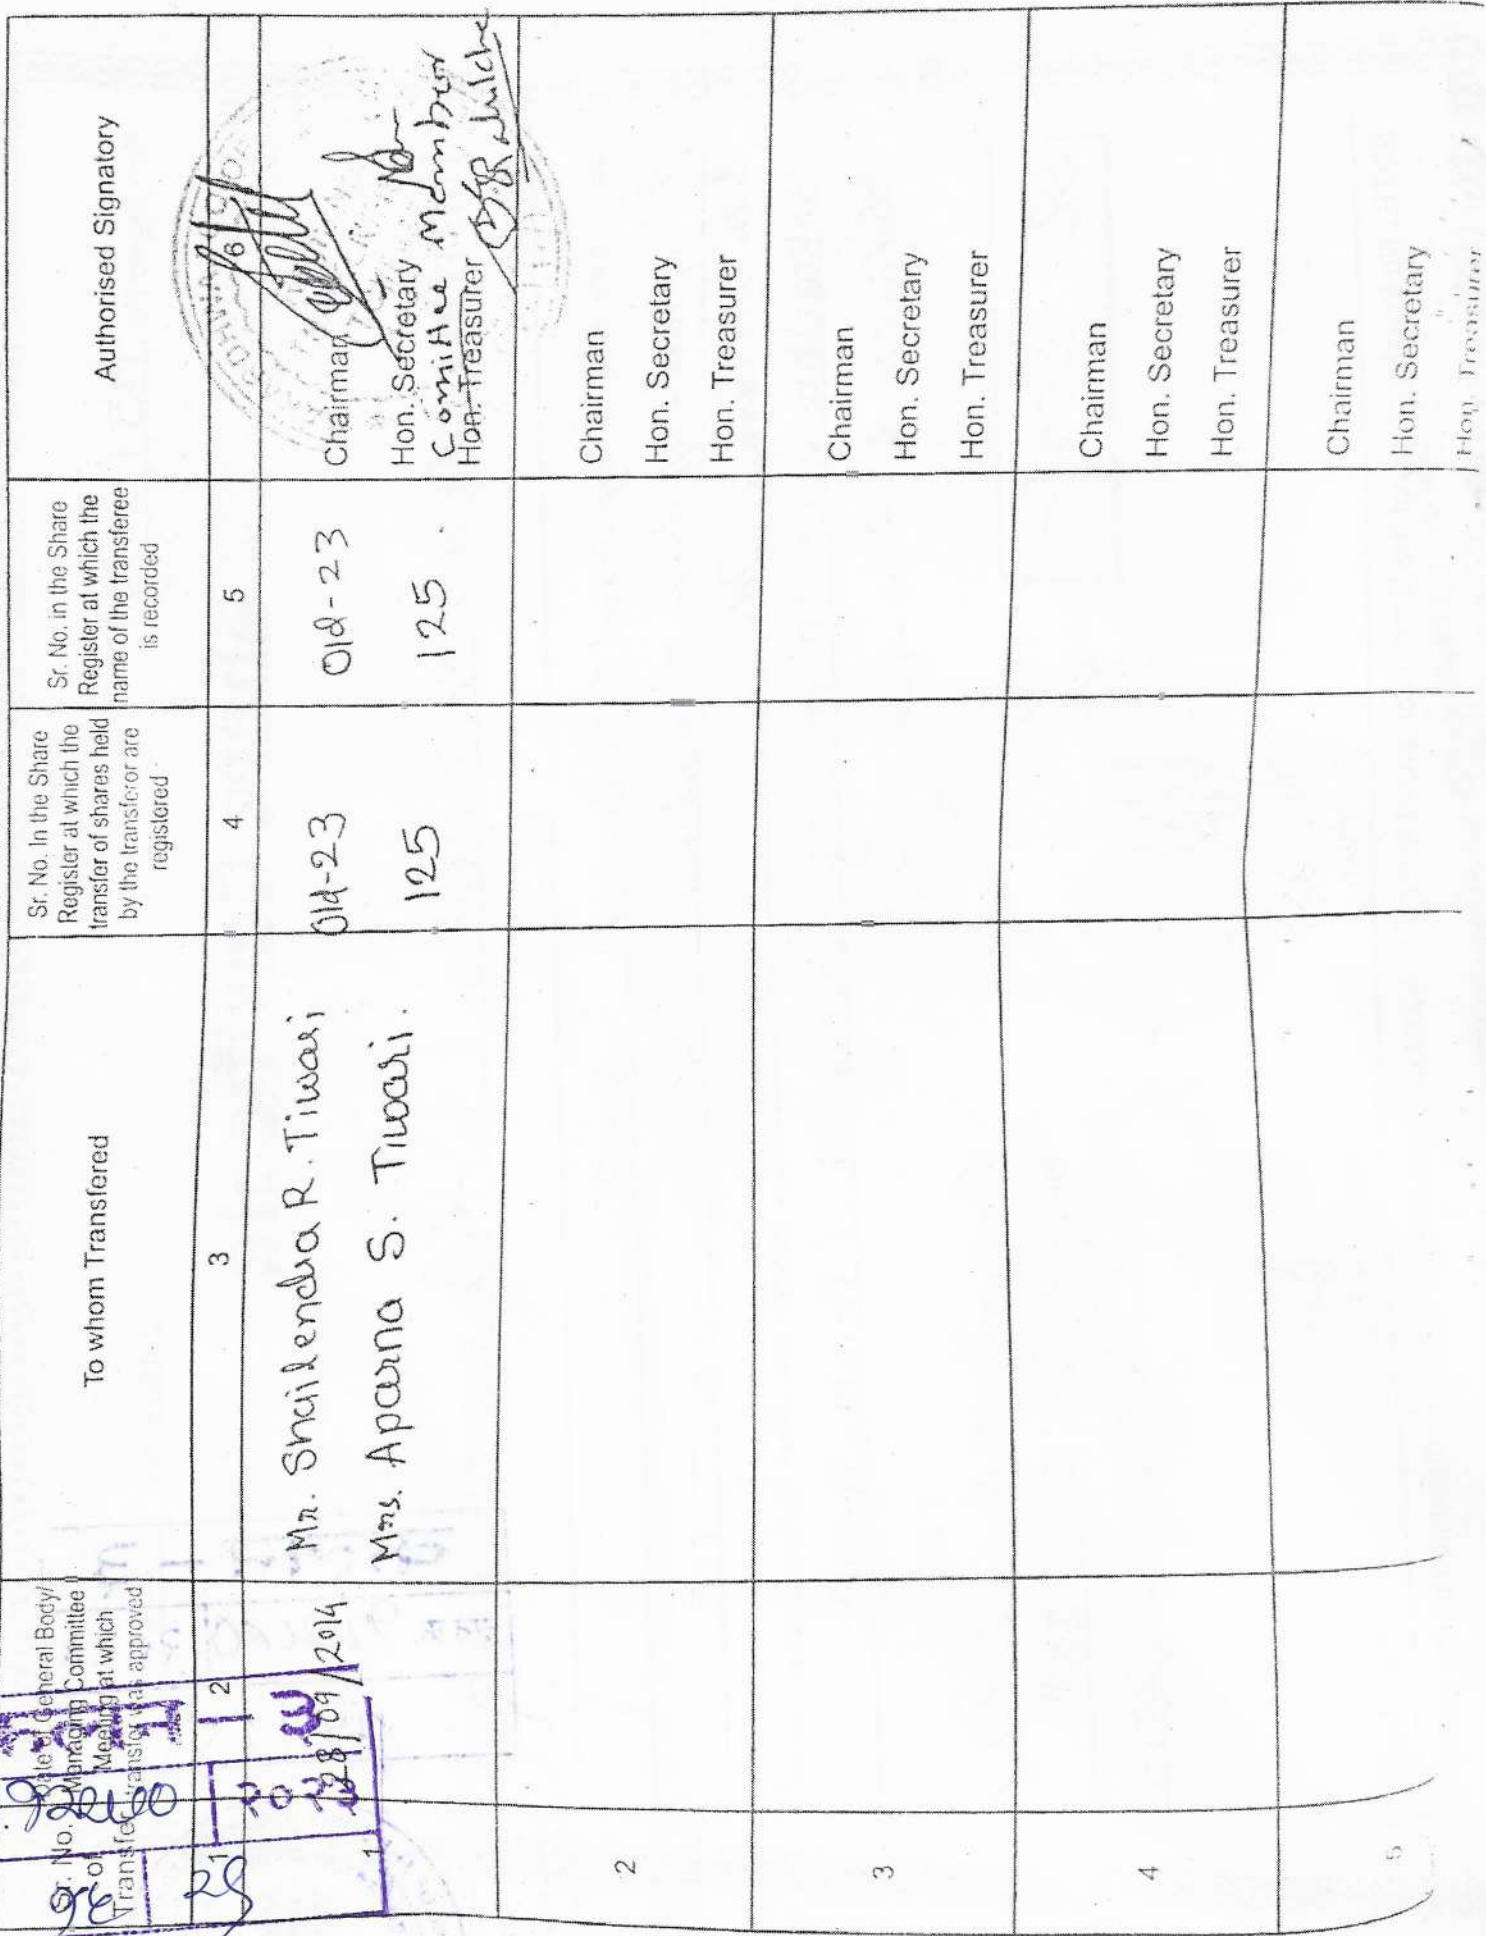 Sr. No. of Transfer
Date of General Body/ Managing Committee Meeting at which Transfer was approved
To whom Transfered
Sr. No. In the Share Register at which the transfer of shares held by the transferor are registered
Sr. No. in the Share Register at which the name of the transferee is recorded
Authorised Signatory
1 2 3 4 5 6
1
28/09/2014
Mr. Shailendra R. Tiwari
Mrs. Aparna S. Tiwari.
Old-23
125
Old-23
125.
Chairman
Hon. Secretary
Comittee Member
Hon. Treasurer
2
Chairman
Hon. Secretary
Hon. Treasurer
3
Chairman
Hon. Secretary
Hon. Treasurer
4
Chairman
Hon. Secretary
Hon. Treasurer
5
Chairman
Hon. Secretary
Hon. Treasurer